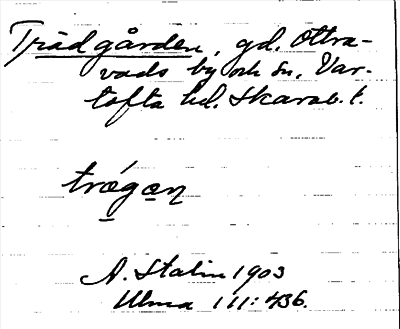 Trädgården, gd. Ottra-
vads by och sn, Var-
tofta hd. Skarab. l.
trǽgæn
A. Stalin 1903
Ulma 111: 436.